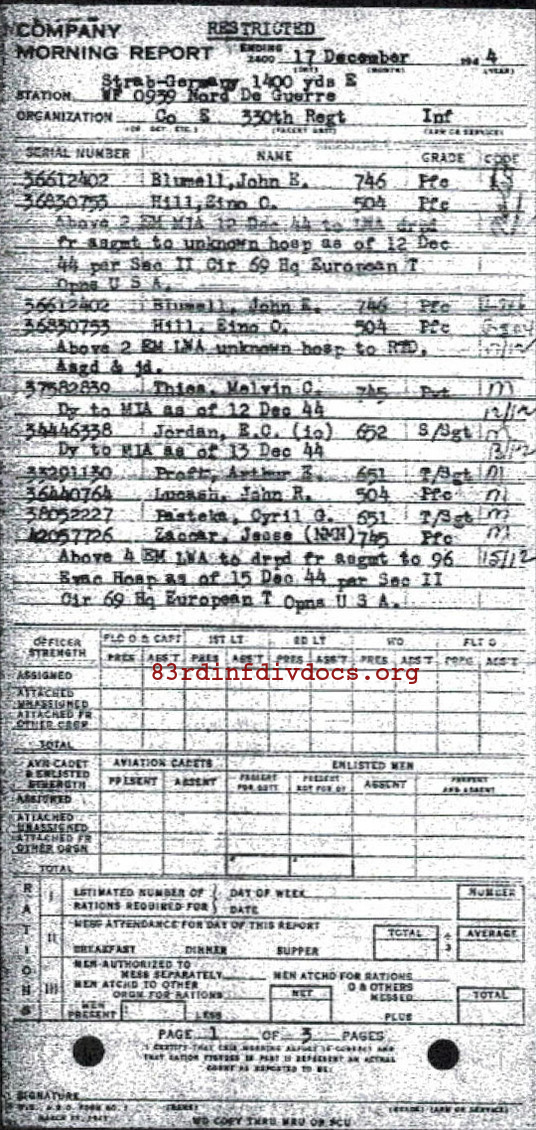 COMPANY
RESTRICTED
MORNING REPORT ENDING 2400 17 December 194 4
(DAY) (MONTH) (YEAR)
Strab-Germany 1400 yds E
STATION WF 0939 Nord De Guerre
ORGANIZATION Co E 330th Regt Inf
(CO. DET. ETC.) (PARENT UNIT) (ARM OR SERVICE)
SERIAL NUMBER NAME GRADE CODE
36612402 Blumell,John E. 746 Pfc
36830753 Hill,Eino O. 504 Pfc
Above 2 EM MIA 12 Dec 44 to LWA drpd
fr asgmt to unknown hosp as of 12 Dec
44 per Sec II Cir 69 Hq European T
Opns U S A.
36612402 Blumell, John E. 746 Pfc
36830753 Hill, Eino O. 504 Pfc
Above 2 EM LWA unknown hosp to RTD, 12/12
Asgd & jd.
37582839 Thies, Melvin C. 745 Pvt M
Dy to MIA as of 12 Dec 44 12/12
34446338 Jordan, E.C. (io) 652 S/Sgt M
Dy to MIA as of 13 Dec 44 13/12
33291130 Arthur E. 651 T/Sgt M
36440764 Lucash, John R. 504 Pfc M
38052227 Pasteka, Cyril G. 651 T/Sgt M
42057726 Zaccar, Jesse (NMN) 745 Pfc M
Above 4 EM LWA to drpd fr asgmt to 96 15/12
Evac Hosp as of 15 Dec 44 per Sec II
Cir 69 Hq European T Opns U S A.
OFFICER STRENGTH FLD O & CAPT 1ST LT 2D LT WO FLT O
PRES ABS'T PRES ABS'T PRES ABS'T PRES ABS'T PRES ABS'T
ASSIGNED
83rdinfdivdocs.org
ATTACHED UNASSIGNED
ATTACHED FR OTHER ORGN
TOTAL
AVN CADET & ENLISTED STRENGTH AVIATION CADETS ENLISTED MEN
PRESENT ABSENT PRESENT FOR DUTY PRESENT NOT FOR DY ABSENT PRESENT AND ABSENT
ASSIGNED
ATTACHED UNASSIGNED
ATTACHED FR OTHER ORGN
TOTAL
RATIONS
I ESTIMATED NUMBER OF RATIONS REQUIRED FOR DAY OF WEEK DATE NUMBER
II MESS ATTENDANCE FOR DAY OF THIS REPORT TOTAL ÷ 3 AVERAGE
BREAKFAST DINNER SUPPER
III MEN AUTHORIZED TO MESS SEPARATELY MEN ATCHD FOR RATIONS
MEN ATCHD TO OTHER ORGN FOR RATIONS NET O & OTHERS MESSED TOTAL
MEN PRESENT LESS PLUS
PAGE 1 OF 3 PAGES
I CERTIFY THAT THIS MORNING REPORT IS CORRECT AND
THAT RATION FIGURES IN PART II REPRESENT AN ACTUAL
COUNT AS REPORTED TO ME:
SIGNATURE
W.D., A.G.O. FORM NO. 1 (NAME) (GRADE) (ARM OR SERVICE)
MARCH
WD COPY THRU MRU OR SCU